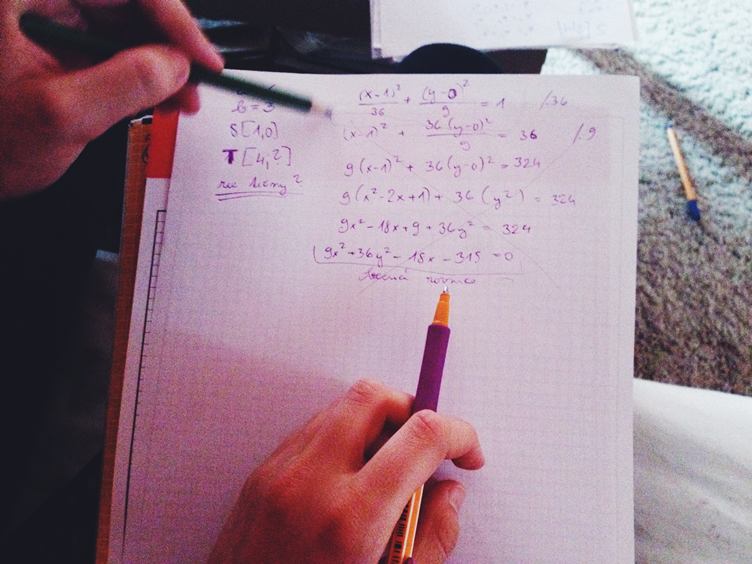 b = 3
S[1,0]
T[4;?]
(x-1)²/36 + (y-0)²/9 = 1 /.36
(x-1)² + 36(y-0)²/9 = 36 /.9
9(x-1)² + 36(y-0)² = 324
9(x²-2x+1) + 36(y²) = 324
9x² - 18x + 9 + 36y² = 324
9x² + 36y² - 18x - 315 = 0